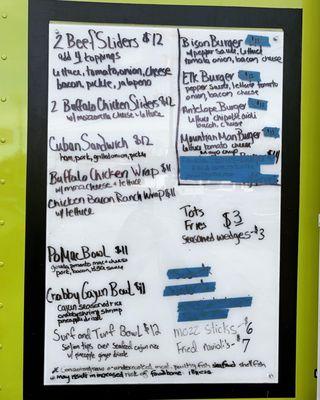 2 Beef Sliders $12
add 4 toppings
lettuce, tomato, onion, cheese
bacon, pickle, jalapeno
2 Buffalo Chicken Sliders $12
w/ mozzarella cheese + lettuce
Cuban Sandwich $12
ham, pork, grilled onion, pickle
Buffalo Chicken Wrap $11
w/ cheese + lettuce
Chicken Bacon Ranch Wrap $11
w/ lettuce
PoMac Bowl $11
gouda, tomato mac + cheese
pork, bacon, sauce
Crabby Cajun Bowl $11
Cajun seasoned rice
crabby shrimp
pineapple
Surf and Turf Bowl $12
Sirloin tips over seafood cajun rice
w/ pineapple ginger drizzle
Bison Burger
w/ pepper sauce, lettuce
tomato, onion, bacon, cheese
Elk Burger
pepper sauce, lettuce tomato
onion, bacon, cheese
Antelope Burger
lettuce chipotle aioli
bacon, cheese
Mountain Man Burger
lettuce tomato cheese
Tots
Fries $3
Seasoned wedges - $3
Mozz Sticks - $6
Fried ravioli's - $7
* Consuming raw or undercooked meat, poultry, fish, seafood shellfish
may result in increased risk of foodborne illness